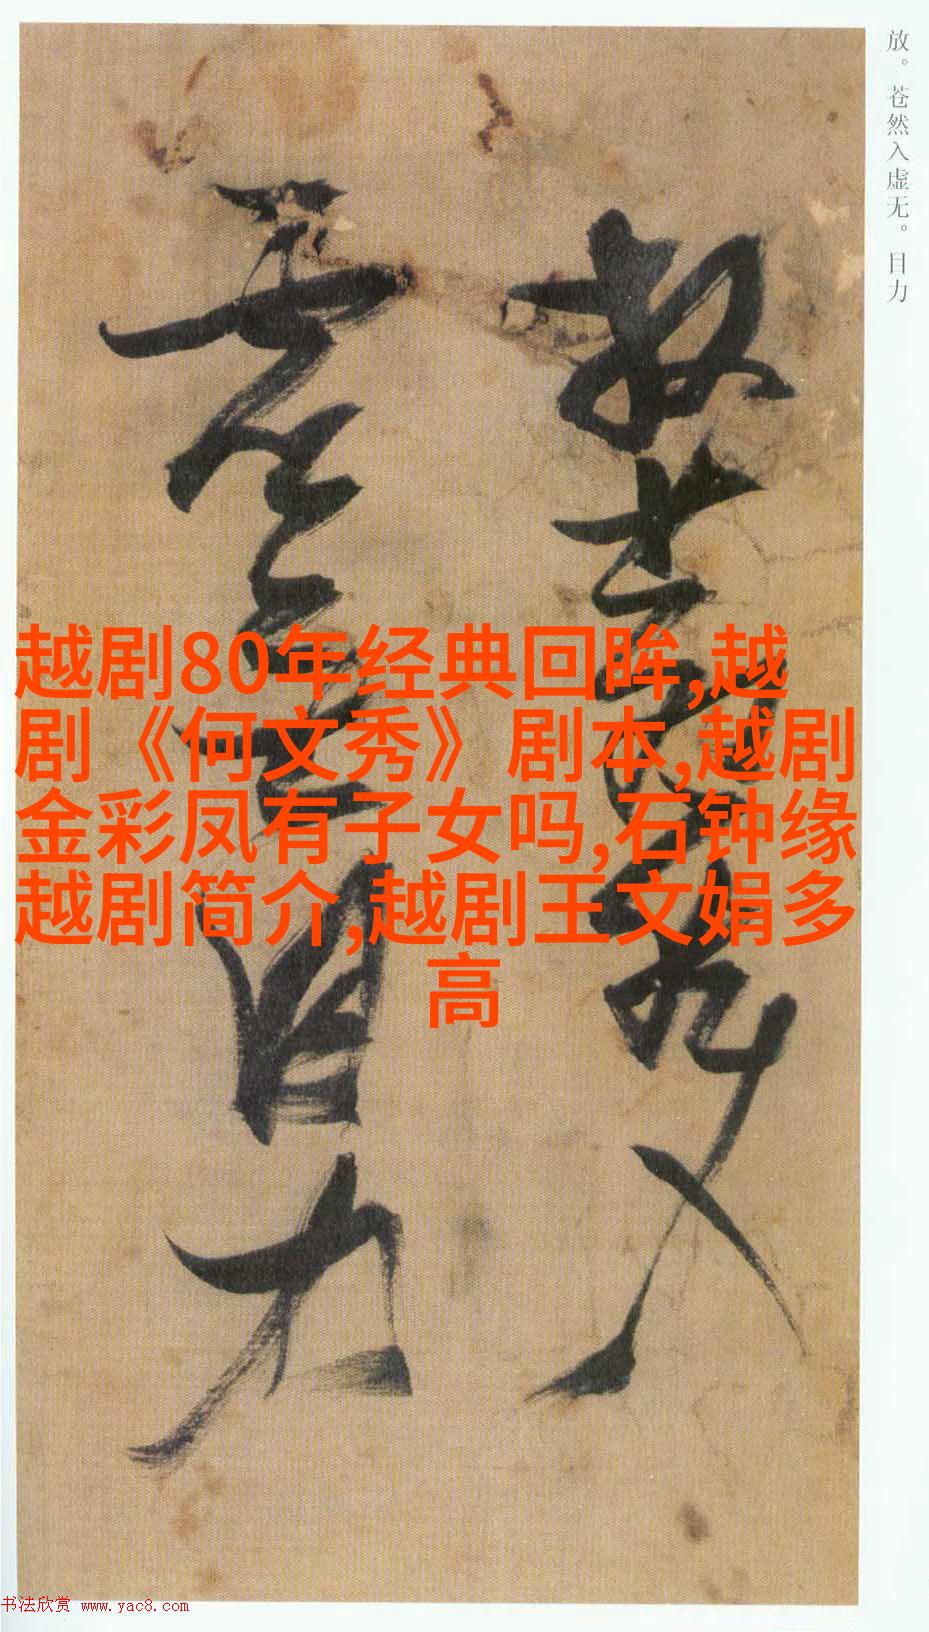 放。苍然入虚无。目力
放苍然入
虚无目力
越剧80年经典回眸,越
剧《何文秀》剧本,越剧
金彩凤有子女吗,石钟缘
越剧简介,越剧王文娟多
高
书法欣赏 www.yac8.com